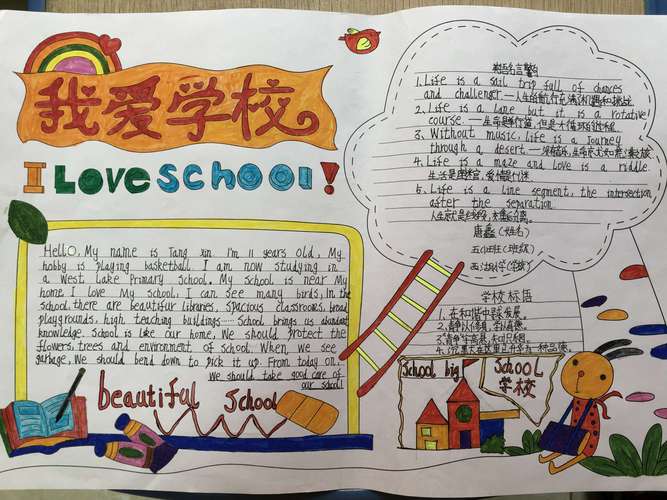 我爱学校
I LOVE SCHOOL!
Hello, My name is Tang Xin I'm 11 years old, My
hobby is playing basketball I am now studying in
a West Lake Primary School. My school is near My
home. I love My school, I can see many birds, In the
school. there are beautiful libraries, spacious classrooms, broad
playgrounds, high teaching buildings—— School brings us abundant
knowledge. School is like our home, We should protect the
flowers, trees and environment of school. When we see
garbage, We should bend down to pick it up. From today on..
We should take good care of
our school
beautiful School
英语名言警句
1. Life is a sail trip full of chances
and challenger ——人生的航行充满机遇和挑战
2. Life is a lane but it is a rotative
course. ——生命是单行道,但是个循环的过程
3. Without music, life is a Journey
through a desert. ——没有音乐,生命
4. Life is a maze and love is a riddle.
生活是座迷宫,爱情是个谜
5. Life is a line segment, the intersection
after the separation.
人生
唐鑫(姓名)
五(班级)
西湖小学(学校)
学校标语
1. 在和谐中求发展。
School big
SCHOOL
学校